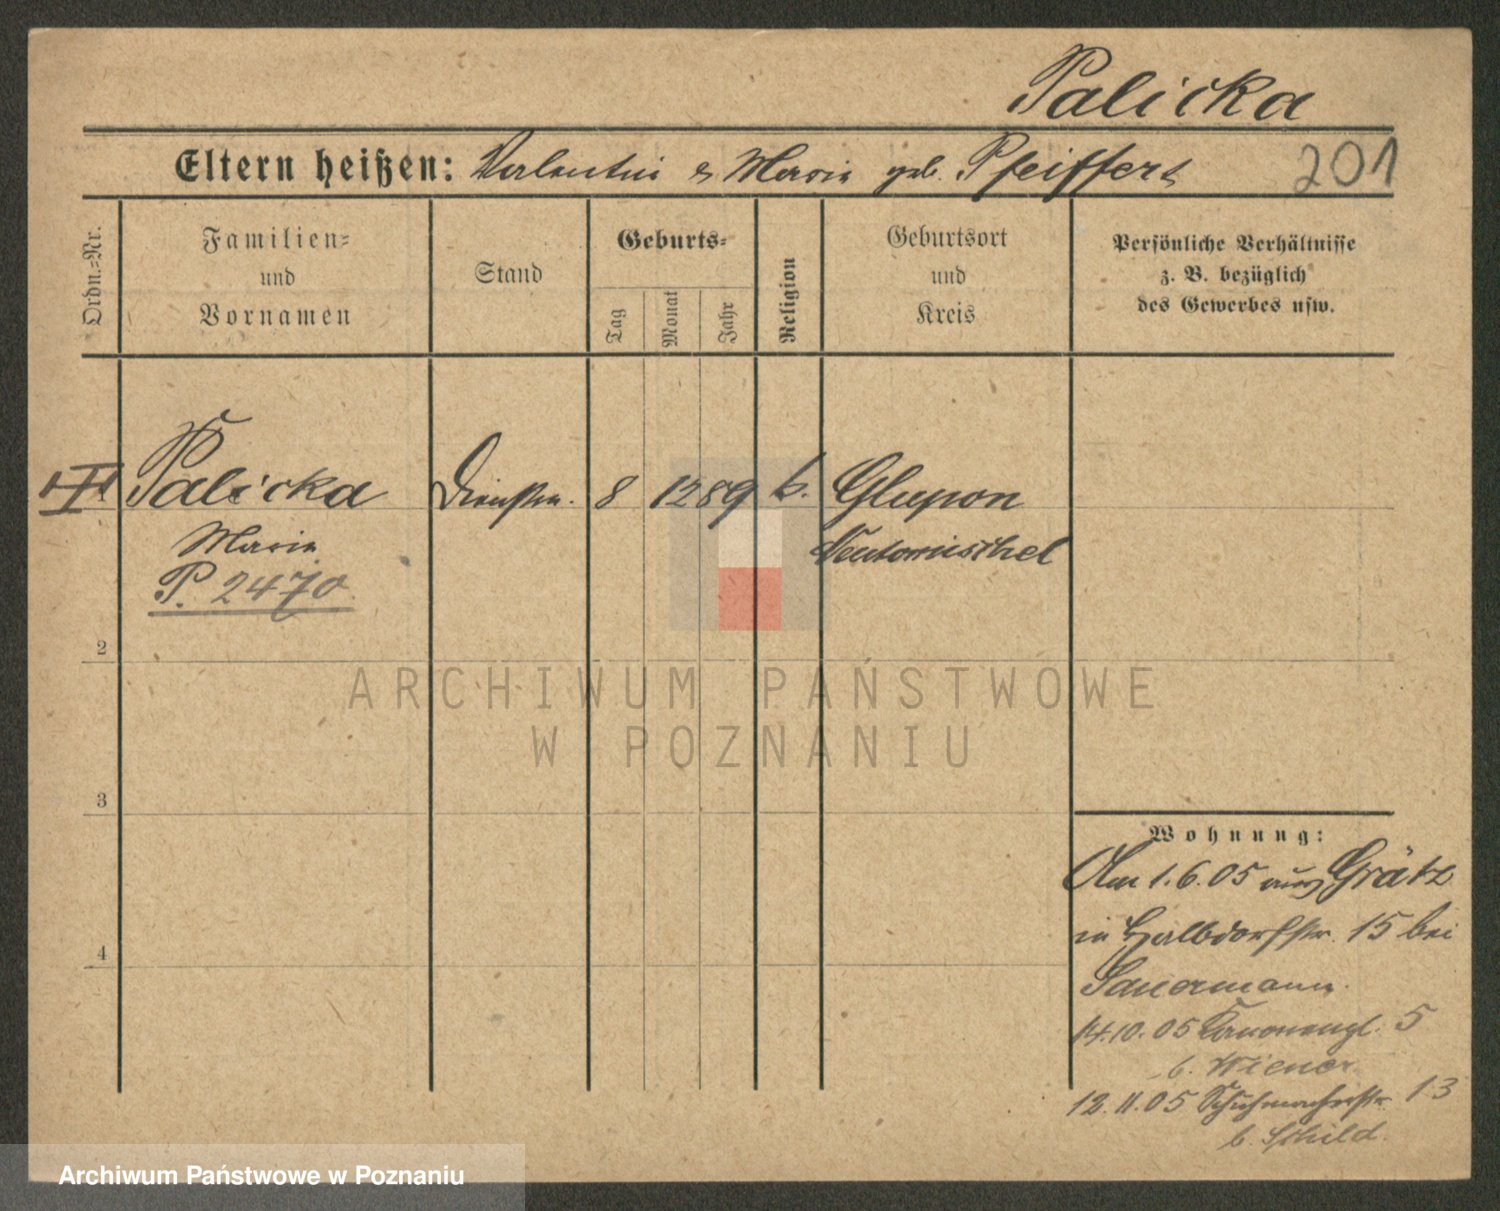 Palicka
Eltern heißen: Valentin & Marie geb. Pfeiffert 201
Ordn.-Nr.
Familien- und Vornamen
Stand
Geburts-
Tag
Monat
Jahr
Religion
Geburtsort und Kreis
Persönliche Verhältnisse z. B. bezüglich des Gewerbes usw.
Palicka Dienstm. 8 12 89 k. Glupon
Marie Neutomischel
P. 2470
2
3
4
Wohnung:
Am 1.6.05 aus Grätz
in Halbdorfstr. 15 bei
Sauermann.
14.10.05 Kanonenpl. 5
b. Wiener
12.11.05 Schuhmacherstr. 13
b. Schild.
ARCHIWUM PAŃSTWOWE
W POZNANIU
Archiwum Państwowe w Poznaniu